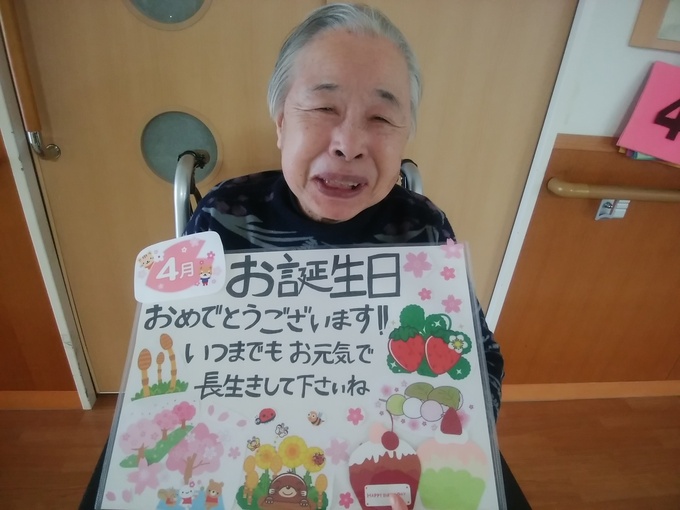 4月
お誕生日
おめでとうございます!!
いつまでも お元気で
長生きして下さいね
HAPPY BIRTHDAY
4